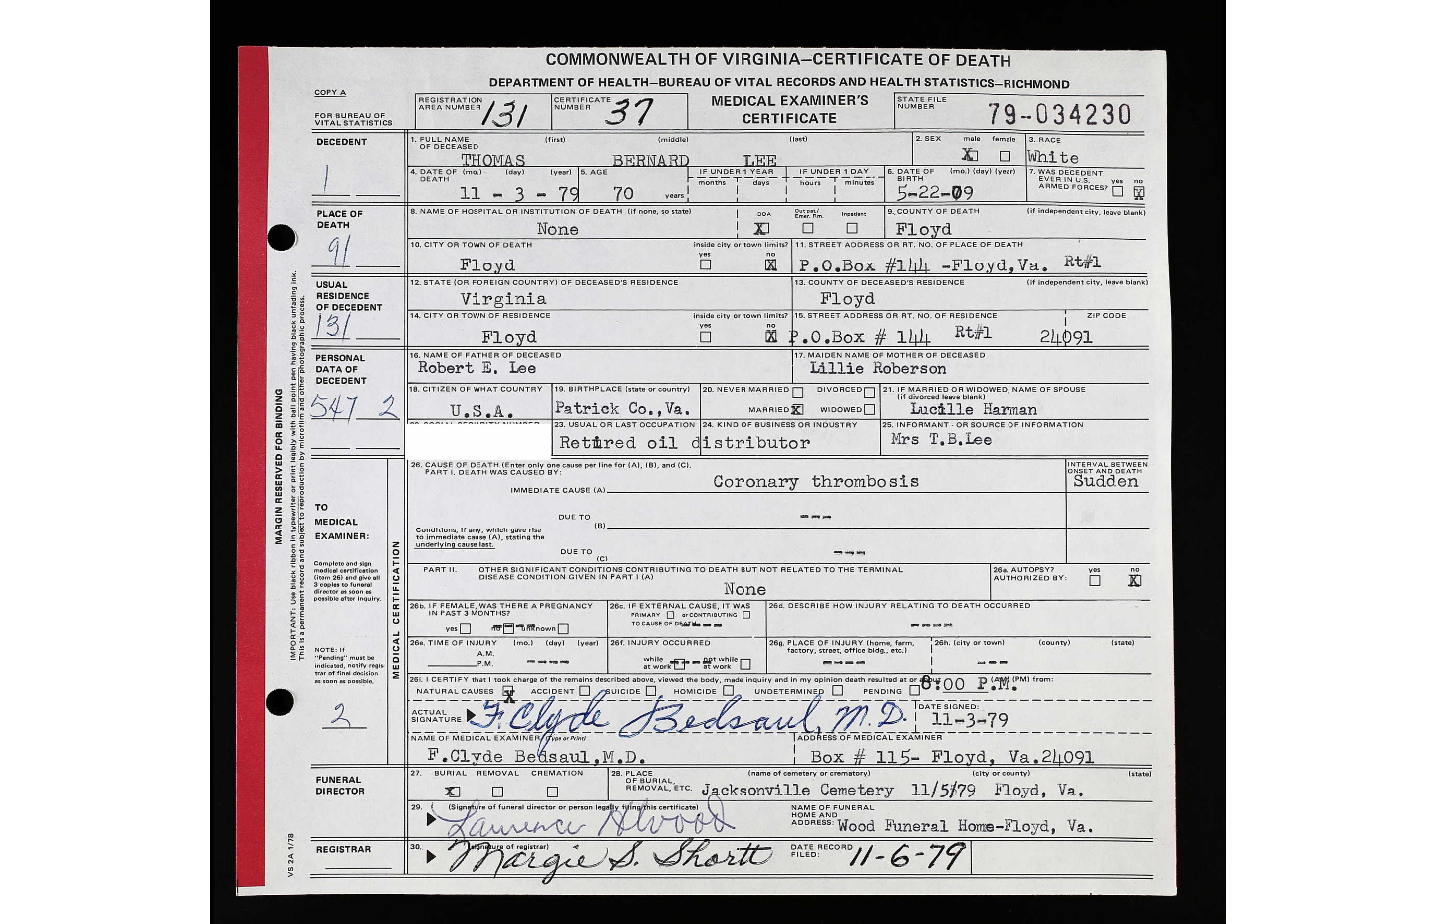 COMMONWEALTH OF VIRGINIA—CERTIFICATE OF DEATH
DEPARTMENT OF HEALTH—BUREAU OF VITAL RECORDS AND HEALTH STATISTICS—RICHMOND
COPY A
FOR BUREAU OF VITAL STATISTICS
REGISTRATION AREA NUMBER 131
CERTIFICATE NUMBER 37
MEDICAL EXAMINER'S CERTIFICATE
STATE FILE NUMBER 79-034230
DECEDENT
1
1. FULL NAME OF DECEASED (first) (middle) (last)
THOMAS BERNARD LEE
2. SEX male X female
3. RACE White
4. DATE OF DEATH (mo.) (day) (year) 11 - 3 - 79
5. AGE 70 years
IF UNDER 1 YEAR months days
IF UNDER 1 DAY hours minutes
6. DATE OF BIRTH (mo.) (day) (year) 5-22-09
7. WAS DECEDENT EVER IN U.S. ARMED FORCES? yes no X
PLACE OF DEATH
91
8. NAME OF HOSPITAL OR INSTITUTION OF DEATH (if none, so state) None
DOA X Out pat/ Emer. Rm. Inpatient
9. COUNTY OF DEATH (if independent city, leave blank) Floyd
10. CITY OR TOWN OF DEATH Floyd
inside city or town limits? yes no X
11. STREET ADDRESS OR RT. NO. OF PLACE OF DEATH
P.O.Box #144 -Floyd,Va. Rt#1
USUAL RESIDENCE OF DECEDENT
131
12. STATE (OR FOREIGN COUNTRY) OF DECEASED'S RESIDENCE Virginia
13. COUNTY OF DECEASED'S RESIDENCE (if independent city, leave blank) Floyd
14. CITY OR TOWN OF RESIDENCE Floyd
inside city or town limits? yes no X
15. STREET ADDRESS OR RT. NO. OF RESIDENCE ZIP CODE
P.O.Box # 144 Rt#1 24091
PERSONAL DATA OF DECEDENT
547 2
16. NAME OF FATHER OF DECEASED Robert E. Lee
17. MAIDEN NAME OF MOTHER OF DECEASED Lillie Roberson
18. CITIZEN OF WHAT COUNTRY U.S.A.
19. BIRTHPLACE (state or country) Patrick Co.,Va.
20. NEVER MARRIED DIVORCED MARRIED X WIDOWED
21. IF MARRIED OR WIDOWED, NAME OF SPOUSE (if divorced leave blank) Lucille Harman
23. USUAL OR LAST OCCUPATION
24. KIND OF BUSINESS OR INDUSTRY
Retired oil distributor
25. INFORMANT - OR SOURCE OF INFORMATION Mrs T.B.Lee
MARGIN RESERVED FOR BINDING
IMPORTANT: Use black ribbon in typewriter or print legibly with ball point pen having black unfading ink.
This is a permanent record and subject to reproduction by microfilm and other photographic process.
TO MEDICAL EXAMINER:
Complete and sign medical certification (item 26) and give all 3 copies to funeral director as soon as possible after inquiry.
NOTE: If "Pending" must be indicated, notify registrar of final decision as soon as possible.
2
MEDICAL CERTIFICATION
26. CAUSE OF DEATH (Enter only one cause per line for (A), (B), and (C).
PART I. DEATH WAS CAUSED BY:
IMMEDIATE CAUSE (A) Coronary thrombosis
INTERVAL BETWEEN ONSET AND DEATH Sudden
DUE TO (B) ---
Conditions, if any, which gave rise to immediate cause (A), stating the underlying cause last.
DUE TO (C) ---
PART II. OTHER SIGNIFICANT CONDITIONS CONTRIBUTING TO DEATH BUT NOT RELATED TO THE TERMINAL DISEASE CONDITION GIVEN IN PART I (A)
None
26a. AUTOPSY? AUTHORIZED BY: yes no X
26b. IF FEMALE, WAS THERE A PREGNANCY IN PAST 3 MONTHS? yes no unknown
26c. IF EXTERNAL CAUSE, IT WAS PRIMARY or CONTRIBUTING TO CAUSE OF DEATH ---
26d. DESCRIBE HOW INJURY RELATING TO DEATH OCCURRED ----
26e. TIME OF INJURY (mo.) (day) (year) A.M. P.M. ----
26f. INJURY OCCURRED while at work not while at work
26g. PLACE OF INJURY (home, farm, factory, street, office bldg., etc.) ----
26h. (city or town) (county) (state) ---
26i. I CERTIFY that I took charge of the remains described above, viewed the body, made inquiry and in my opinion death resulted at or about 8:00 P.M. (AM) (PM) from:
NATURAL CAUSES X ACCIDENT SUICIDE HOMICIDE UNDETERMINED PENDING
ACTUAL SIGNATURE F. Clyde Bedsaul, M.D.
DATE SIGNED: 11-3-79
NAME OF MEDICAL EXAMINER (Type or Print) F.Clyde Bedsaul,M.D.
ADDRESS OF MEDICAL EXAMINER Box # 115- Floyd, Va.24091
FUNERAL DIRECTOR
27. BURIAL X REMOVAL CREMATION
28. PLACE OF BURIAL, REMOVAL, ETC. (name of cemetery or crematory) (city or county) (state)
Jacksonville Cemetery 11/5/79 Floyd, Va.
29. (Signature of funeral director or person legally filing this certificate)
Lawrence Atwood
NAME OF FUNERAL HOME AND ADDRESS: Wood Funeral Home-Floyd, Va.
REGISTRAR
30. (signature of registrar) Margie S. Shortt
DATE RECORD FILED: 11-6-79
VS 2A 1/78